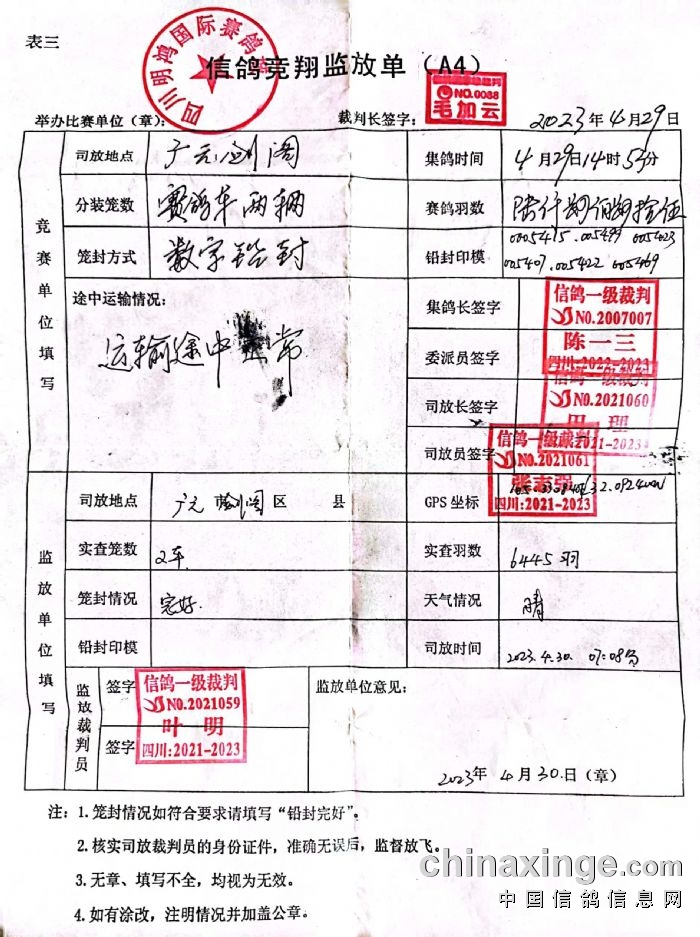 表三
四川明鸿国际赛鸽
信鸽竞翔监放单（A4）
NO.0088
毛加云
举办比赛单位（章）：
裁判长签字：
2023年4月29日
竞赛单位填写
司放地点 广元剑阁
集鸽时间 4月29日14时53分
分装笼数 赛鸽车两辆
赛鸽羽数 陆仟肆佰肆拾伍
笼封方式 数字铅封
铅封印模 0005415.005499 005423
005407.005422 005469
途中运输情况：
运输途中正常
集鸽长签字
信鸽一级裁判
NO.2007007
陈一三
四川:2022-2023
委派员签字
司放长签字
信鸽一级裁判
NO.2021060
田理
司放员签字
信鸽一级裁判
NO.2021061
张志强
四川:2021-2023
监放单位填写
司放地点 广元市剑阁区 县
GPS坐标
实查笼数 2车
实查羽数 6445羽
笼封情况 完好.
天气情况 晴
铅封印模
司放时间 2023.4.30. 07:08分
监放裁判员
签字
信鸽一级裁判
NO.2021059
叶明
四川:2021-2023
签字
监放单位意见：
2023年4月30日（章）
注：1.笼封情况如符合要求请填写“铅封完好”。
2.核实司放裁判员的身份证件，准确无误后，监督放飞。
3.无章、填写不全，均视为无效。
4.如有涂改，注明情况并加盖公章。
chinaxinge.com
中国信鸽信息网